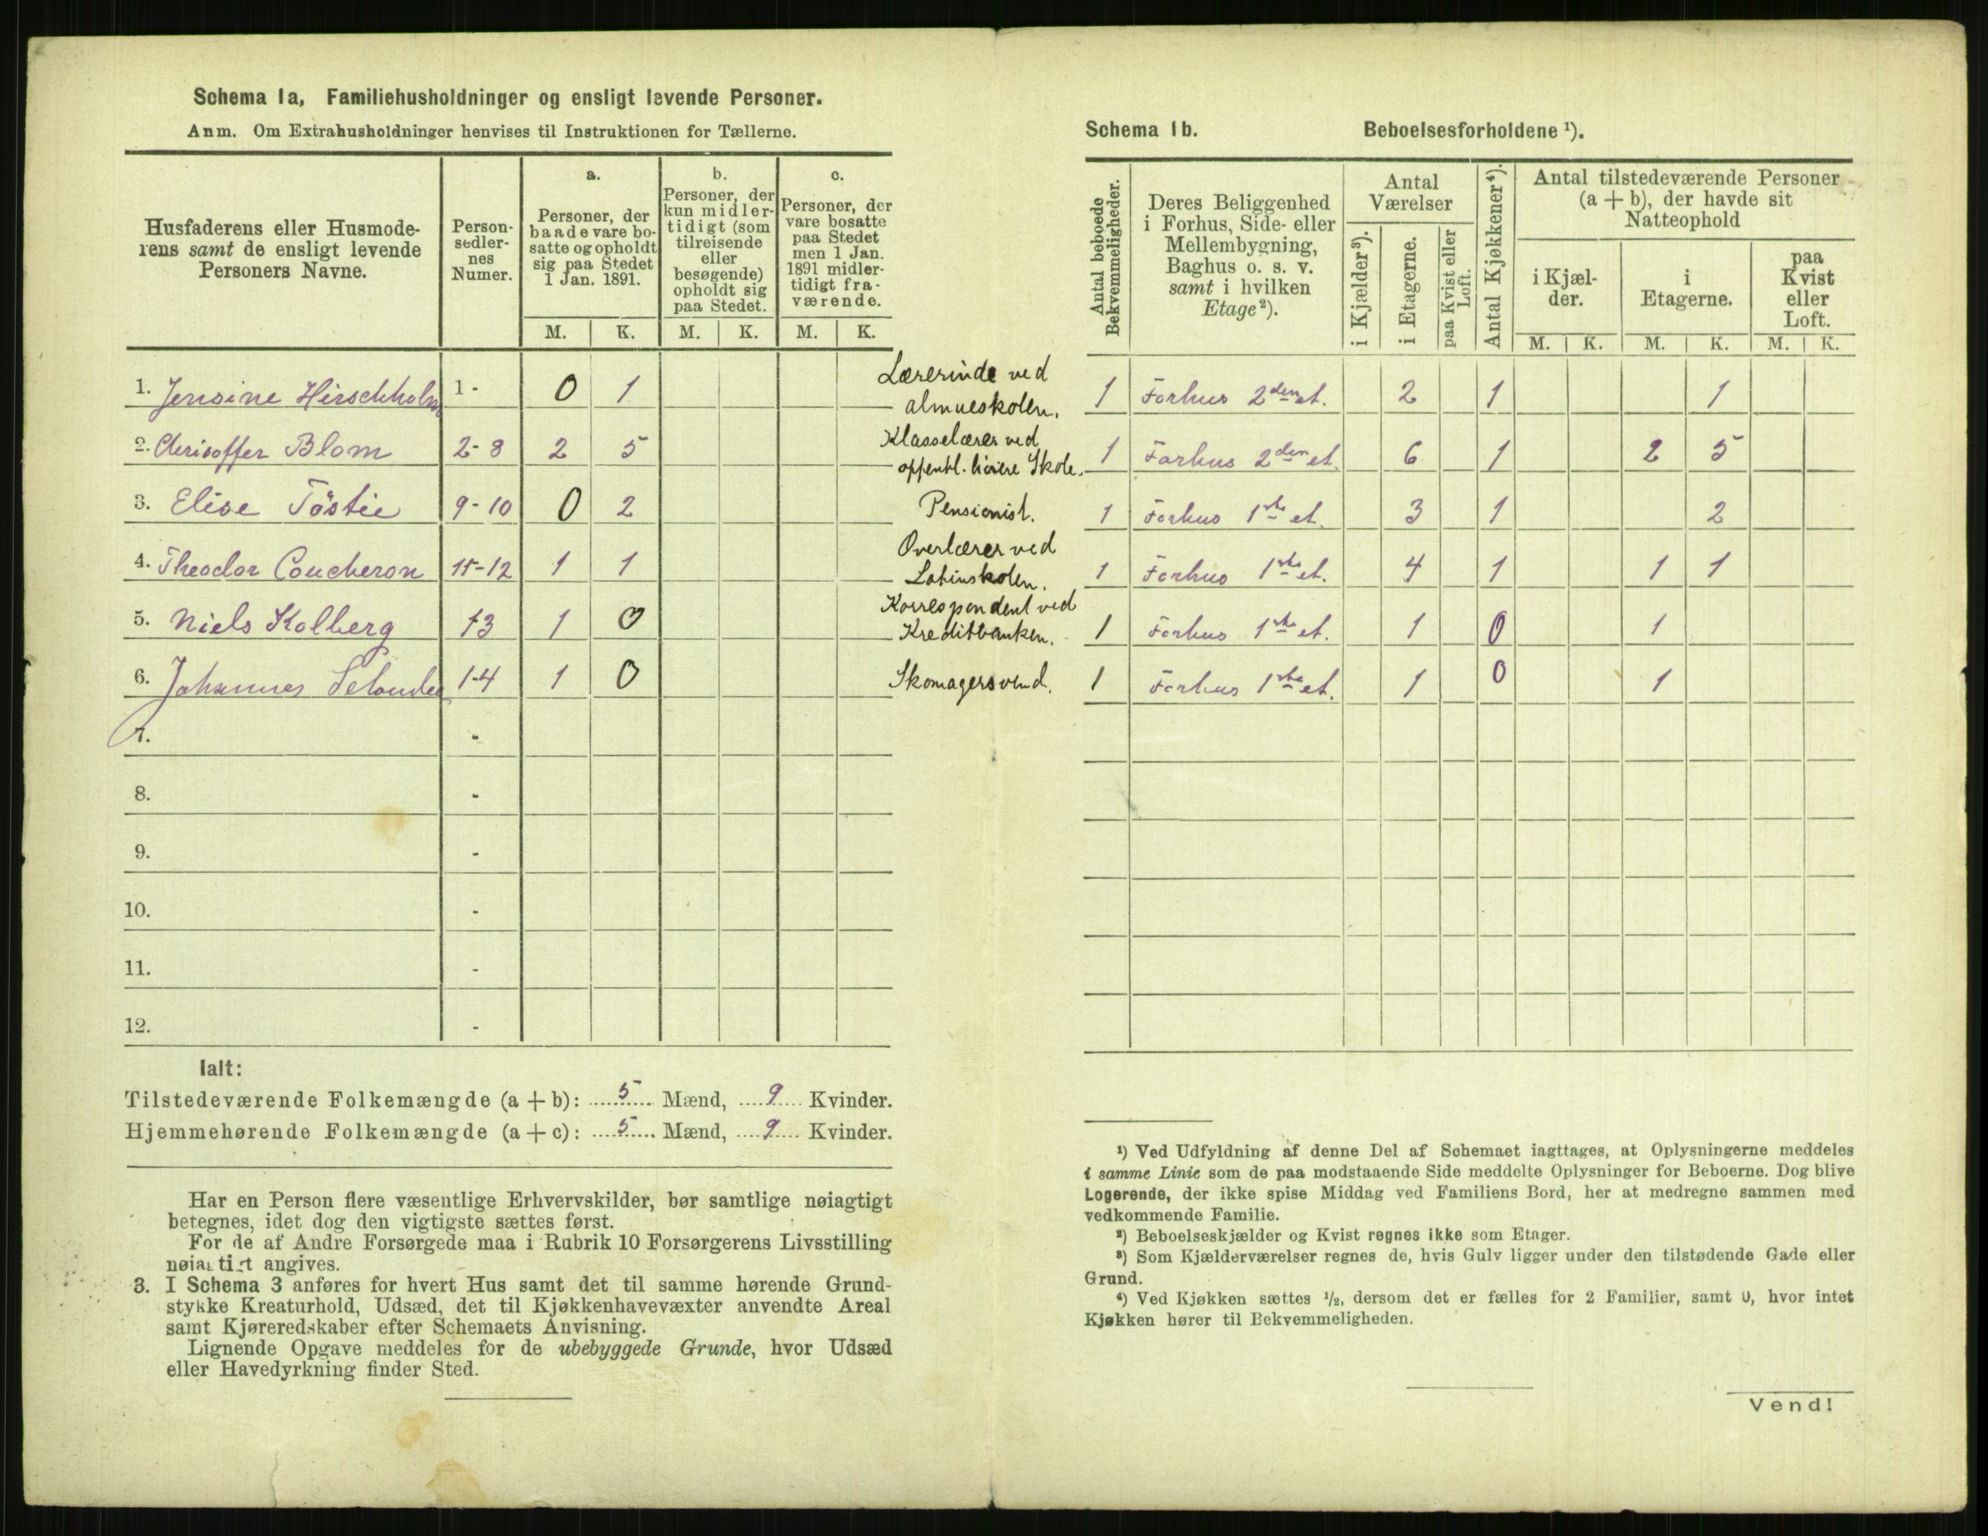 Schema 1a, Familiehusholdninger og ensligt levende Personer.
Anm. Om Extrahusholdninger henvises til Instruktionen for Tællerne.
Husfaderens eller Husmode-
rens samt de ensligt levende
Personers Navne.
Person-
sedler-
nes
Numer.
a.
Personer, der
baade vare bo-
satte og opholdt
sig paa Stedet
1 Jan. 1891.
b.
Personer, der
kun midler-
tidigt (som
tilreisende
eller
besøgende)
opholdt sig
paa Stedet.
c.
Personer, der
vare bosatte
paa Stedet
men 1 Jan.
1891 midler-
tidigt fra-
værende.
M. K. M. K. M. K.
1. Jensine Hirschholm 1- 0 1 Lærerinde ved
almueskolen.
2. Chrisoffer Blom 2-8 2 5 Klasselærer ved
offentl. høiere Skole.
3. Elise Töstie 9-10 0 2 Pensionist.
4. Theodor Coucheron 11-12 1 1 Overlærer ved
Latinskolen.
5. Niels Kolberg 13 1 0 Korrespondent ved
Kreditbanken.
6. Johannes 14 1 0 Skomagersvend.
7. -
8. -
9. -
10. -
11. -
12. -
Ialt:
Tilstedeværende Folkemængde (a + b): 5 Mænd, 9 Kvinder.
Hjemmehørende Folkemængde (a + c): 5 Mænd, 9 Kvinder.
Har en Person flere væsentlige Erhvervskilder, bør samtlige nøiagtigt
betegnes, idet dog den vigtigste sættes først.
For de af Andre Forsørgede maa i Rubrik 10 Forsørgerens Livsstilling
nøiagtigt angives.
3. I Schema 3 anføres for hvert Hus samt det til samme hørende Grund-
stykke Kreaturhold, Udsæd, det til Kjøkkenhavevæxter anvendte Areal
samt Kjøreredskaber efter Schemaets Anvisning.
Lignende Opgave meddeles for de ubebyggede Grunde, hvor Udsæd
eller Havedyrkning finder Sted.
Schema 1b. Beboelsesforholdene ¹).
Antal beboede
Bekvemmeligheder.
Deres Beliggenhed
i Forhus, Side- eller
Mellembygning,
Baghus o. s. v.
samt i hvilken
Etage ²).
Antal
Værelser
i Kjælder ³).
i Etagerne.
paa Kvist eller
Loft.
Antal Kjøkkener ⁴).
Antal tilstedeværende Personer
(a + b), der havde sit
Natteophold
i Kjæl-
der.
i
Etagerne.
paa
Kvist
eller
Loft.
M. K. M. K. M. K.
1 Forhus 2den et. 2 1 1
1 Forhus 2den et. 6 1 2 5
1 Forhus 1ste et. 3 1 2
1 Forhus 1ste et. 4 1 1 1
1 Forhus 1ste et. 1 0 1
1 Forhus 1ste et. 1 0 1
¹) Ved Udfyldning af denne Del af Schemaet iagttages, at Oplysningerne meddeles
i samme Linie som de paa modstaaende Side meddelte Oplysninger for Beboerne. Dog blive
Logerende, der ikke spise Middag ved Familiens Bord, her at medregne sammen med
vedkommende Familie.
²) Beboelseskjælder og Kvist regnes ikke som Etager.
³) Som Kjælderværelser regnes de, hvis Gulv ligger under den tilstødende Gade eller
Grund.
⁴) Ved Kjøkken sættes ½, dersom det er fælles for 2 Familier, samt 0, hvor intet
Kjøkken hører til Bekvemmeligheden.
Vend!